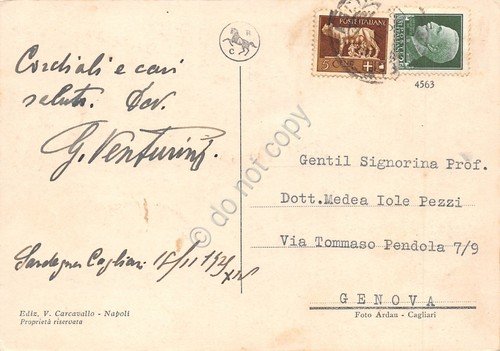 Cordiali e cari
saluti. Dev.
G. Venturini.
Sardegna Cagliari
Ediz. V. Carcavallo - Napoli
Proprietà riservata
R
C
POSTE ITALIANE
5 CENT.
4563
Gentil Signorina Prof.
Dott.Medea Iole Pezzi
Via Tommaso Pendola 7/9
GENOVA
Foto Ardau - Cagliari
© do not copy